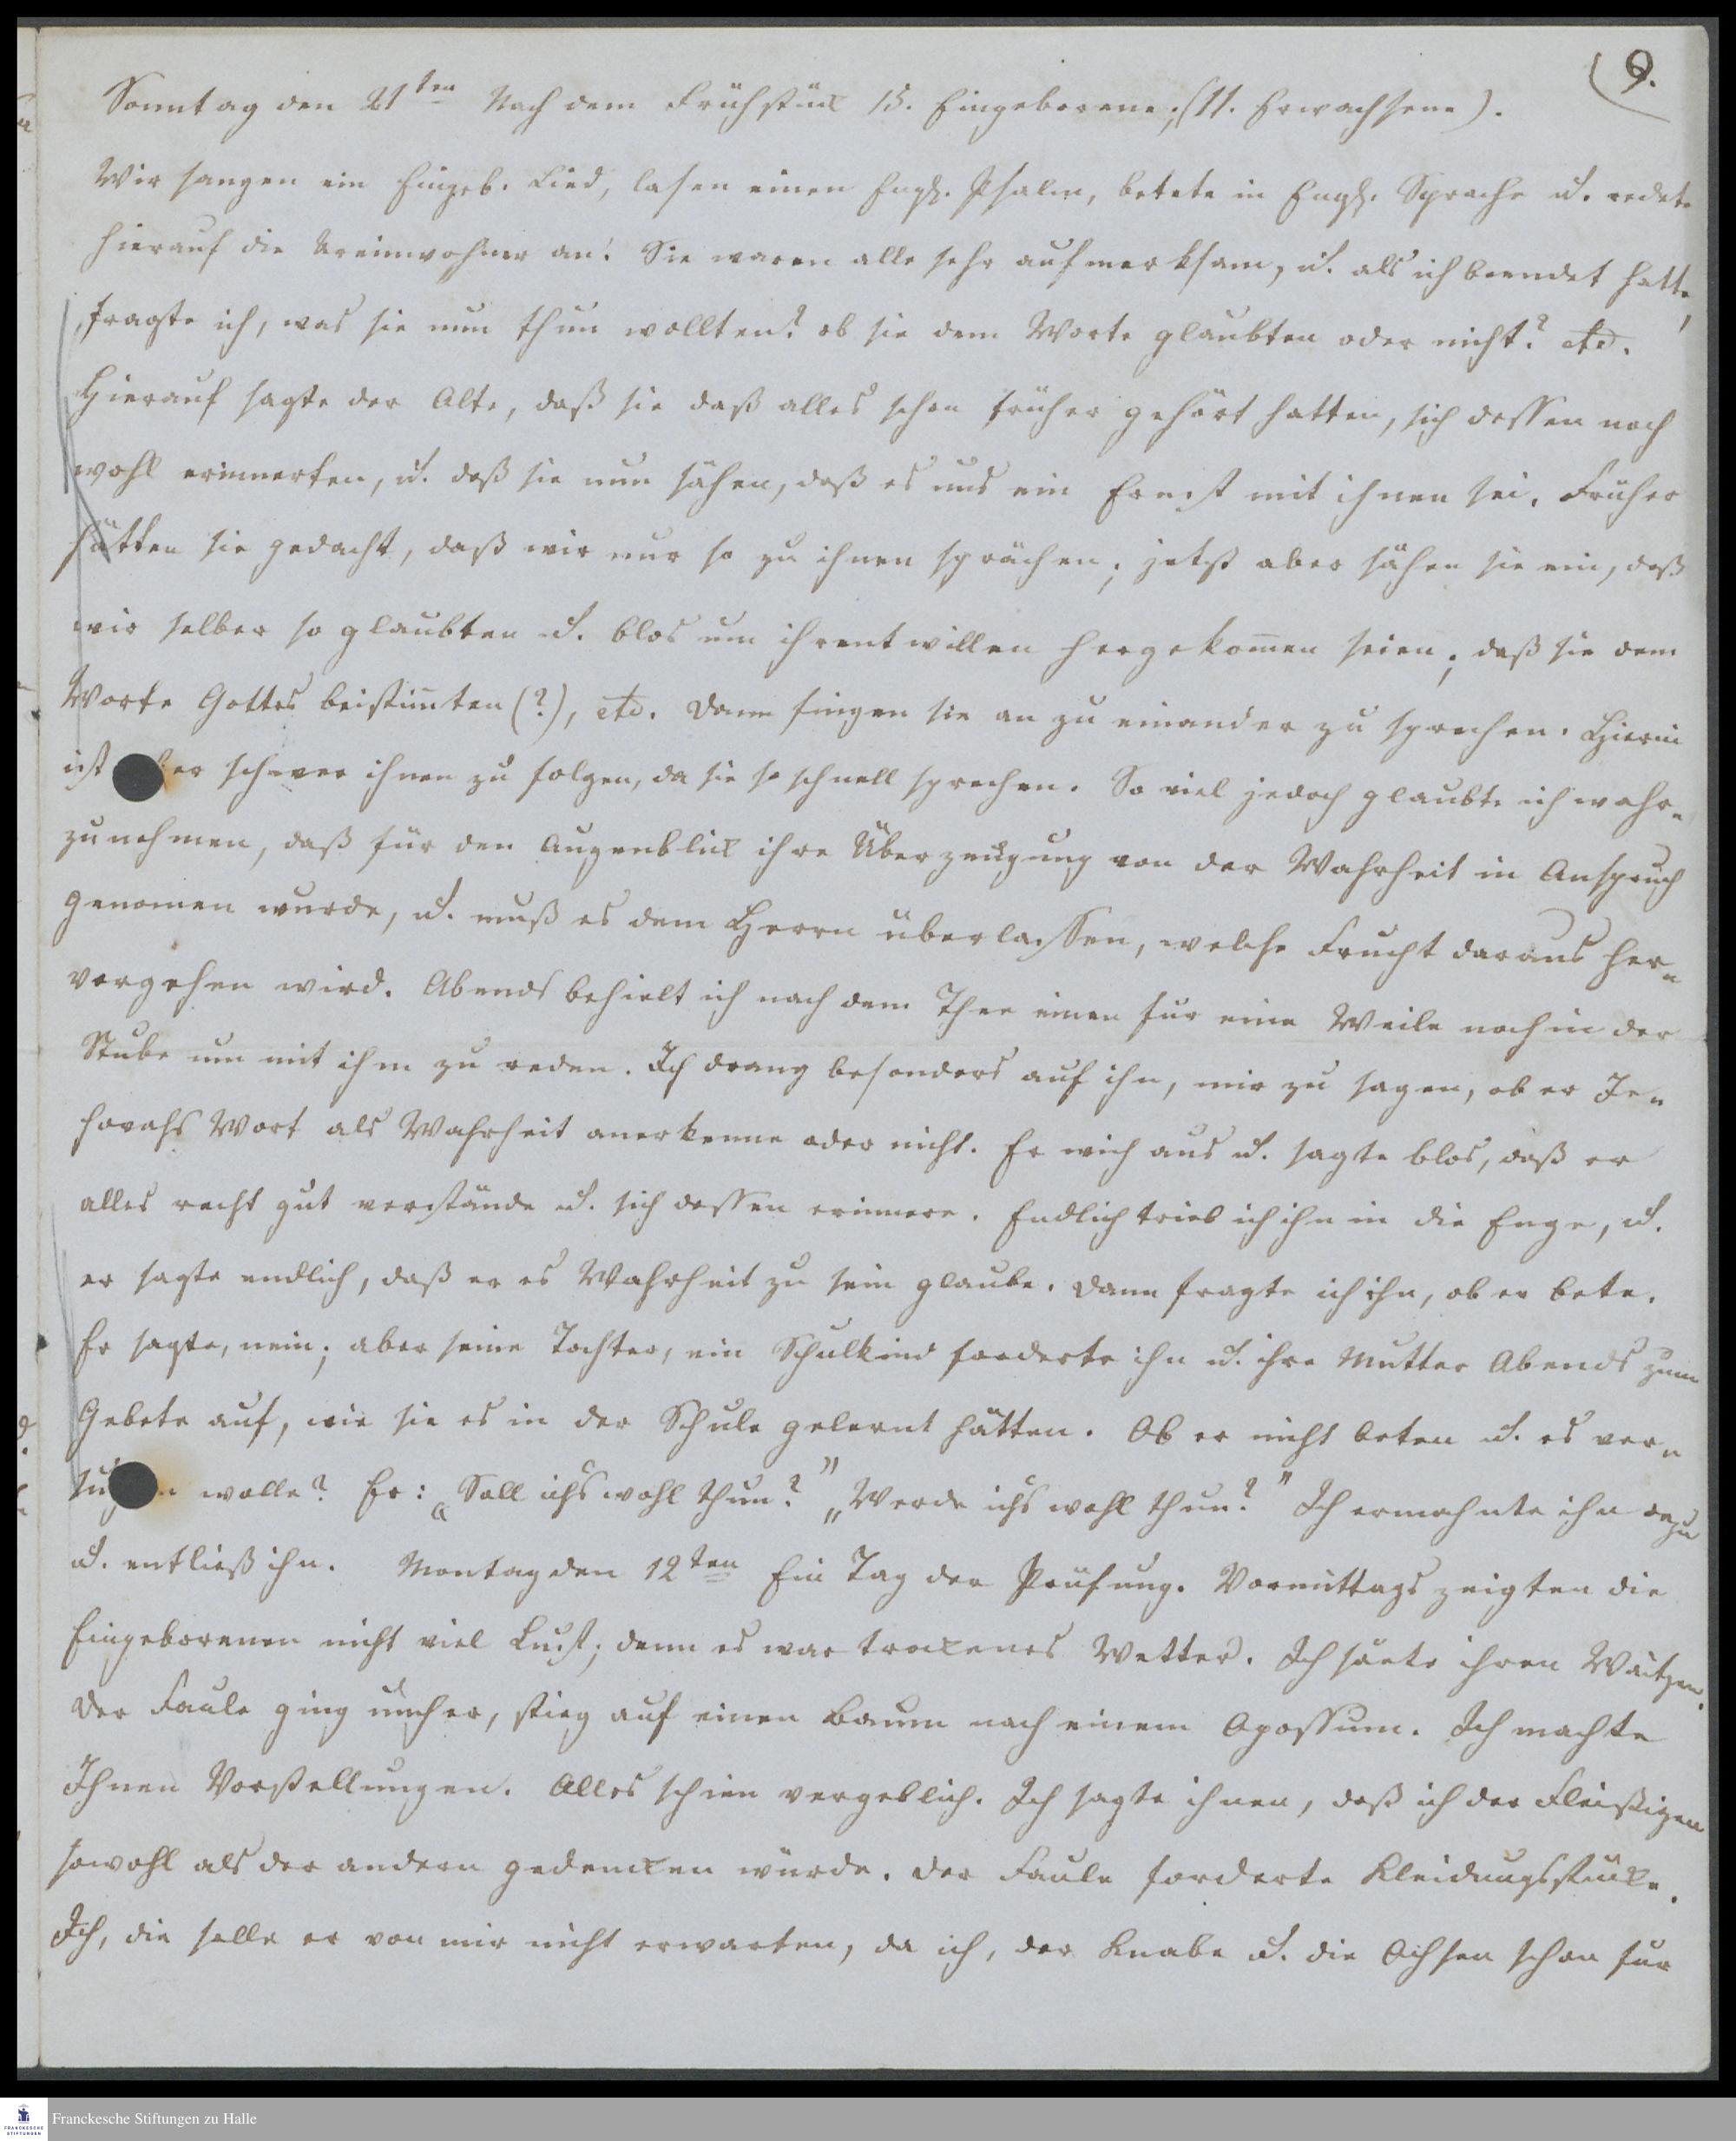 9.
Sonntag den 21ten Nach dem Frühstück 15. Eingeborene; (11. Erwachsene).
Wir sangen ein Eingeb. Lied, lasen einen Engl. Psalm, betete in Engl. Sprache u. redete
hierauf die Ureinwohner an. Sie waren alle sehr aufmerksam, u. als ich beendet hatte,
fragte ich, was sie nun thun wollten? ob sie dem Worte glaubten oder nicht? etc.
Hierauf sagte der Alte, daß sie daß alles schon früher gehört hatten, sich dessen noch
wohl erinnerten, u. daß sie nun sähen, daß es uns ein Ernst mit ihnen sei. Früher
hätten sie gedacht, daß wir nur so zu ihnen sprächen; jetzt aber sähen sie ein, daß
wir selber so glaubten u. blos um ihrentwillen hergekom̄en seien; daß sie dem
Worte Gottes beistim̄ten (?), etc. Dann fingen sie an zu einander zu sprechen. Hierin
ist er schwer ihnen zu folgen, da sie so schnell sprechen. So viel jedoch glaubte ich wahr-
zunehmen, daß für den Augenblick ihre Überzeugung von der Wahrheit in Anspruch
genomen wurde, u. muß es dem Herrn überlassen, welche Frucht daraus her-
vorgehen wird. Abends behielt ich nach dem Thee einen für eine Weile noch in der
Stube um mit ihm zu reden. Ich drang besonders auf ihn, mir zu sagen, ob er Je-
hovahs Wort als Wahrheit anerkenne oder nicht. Er wich aus u. sagte blos, daß er
alles recht gut verstände u. sich dessen erinnere. Endlich trieb ich ihn in die Enge, u.
er sagte endlich, daß er es Wahrheit zu sein glaube. Dann fragte ich ihn, ob er bete.
Er sagte, nein; aber seine Tochter, ein Schulkind forderte ihn u. ihre Mutter Abends zum
Gebete auf, wie sie es in der Schule gelernt hätten. Ob er nicht beten u. es ver-
suchen wolle? Er: „Soll ichs wohl thun?" „Werde ichs wohl thun?" Ich ermahnte ihn dazu
u. entließ ihn. Montag den 12ten Ein Tag der Prüfung. Vormittags zeigten die
Eingeborenen nicht viel Lust; denn es war trockenes Wetter. Ich säete ihren Waitzen.
Der Faule ging umher, stieg auf einen Baum nach einem Opossum. Ich machte
Ihnen Vorstellungen. Alles schien vergeblich. Ich sagte ihnen, daß ich der Fleißigen
sowohl als der andern gedencken würde. Der Faule forderte Kleidungsstücke.
Ich, die solle er von mir nicht erwarten, da ich, der Knabe u. die Ochsen schon für
Franckesche Stiftungen zu Halle
FRANCKESCHE
STIFTUNGEN